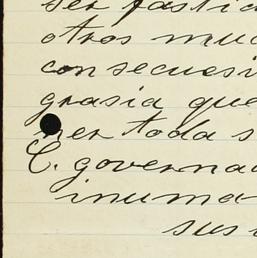 ser fasti
otros muc
consecuesi
grasia que
ner toda s
C. governa
inuma
sus